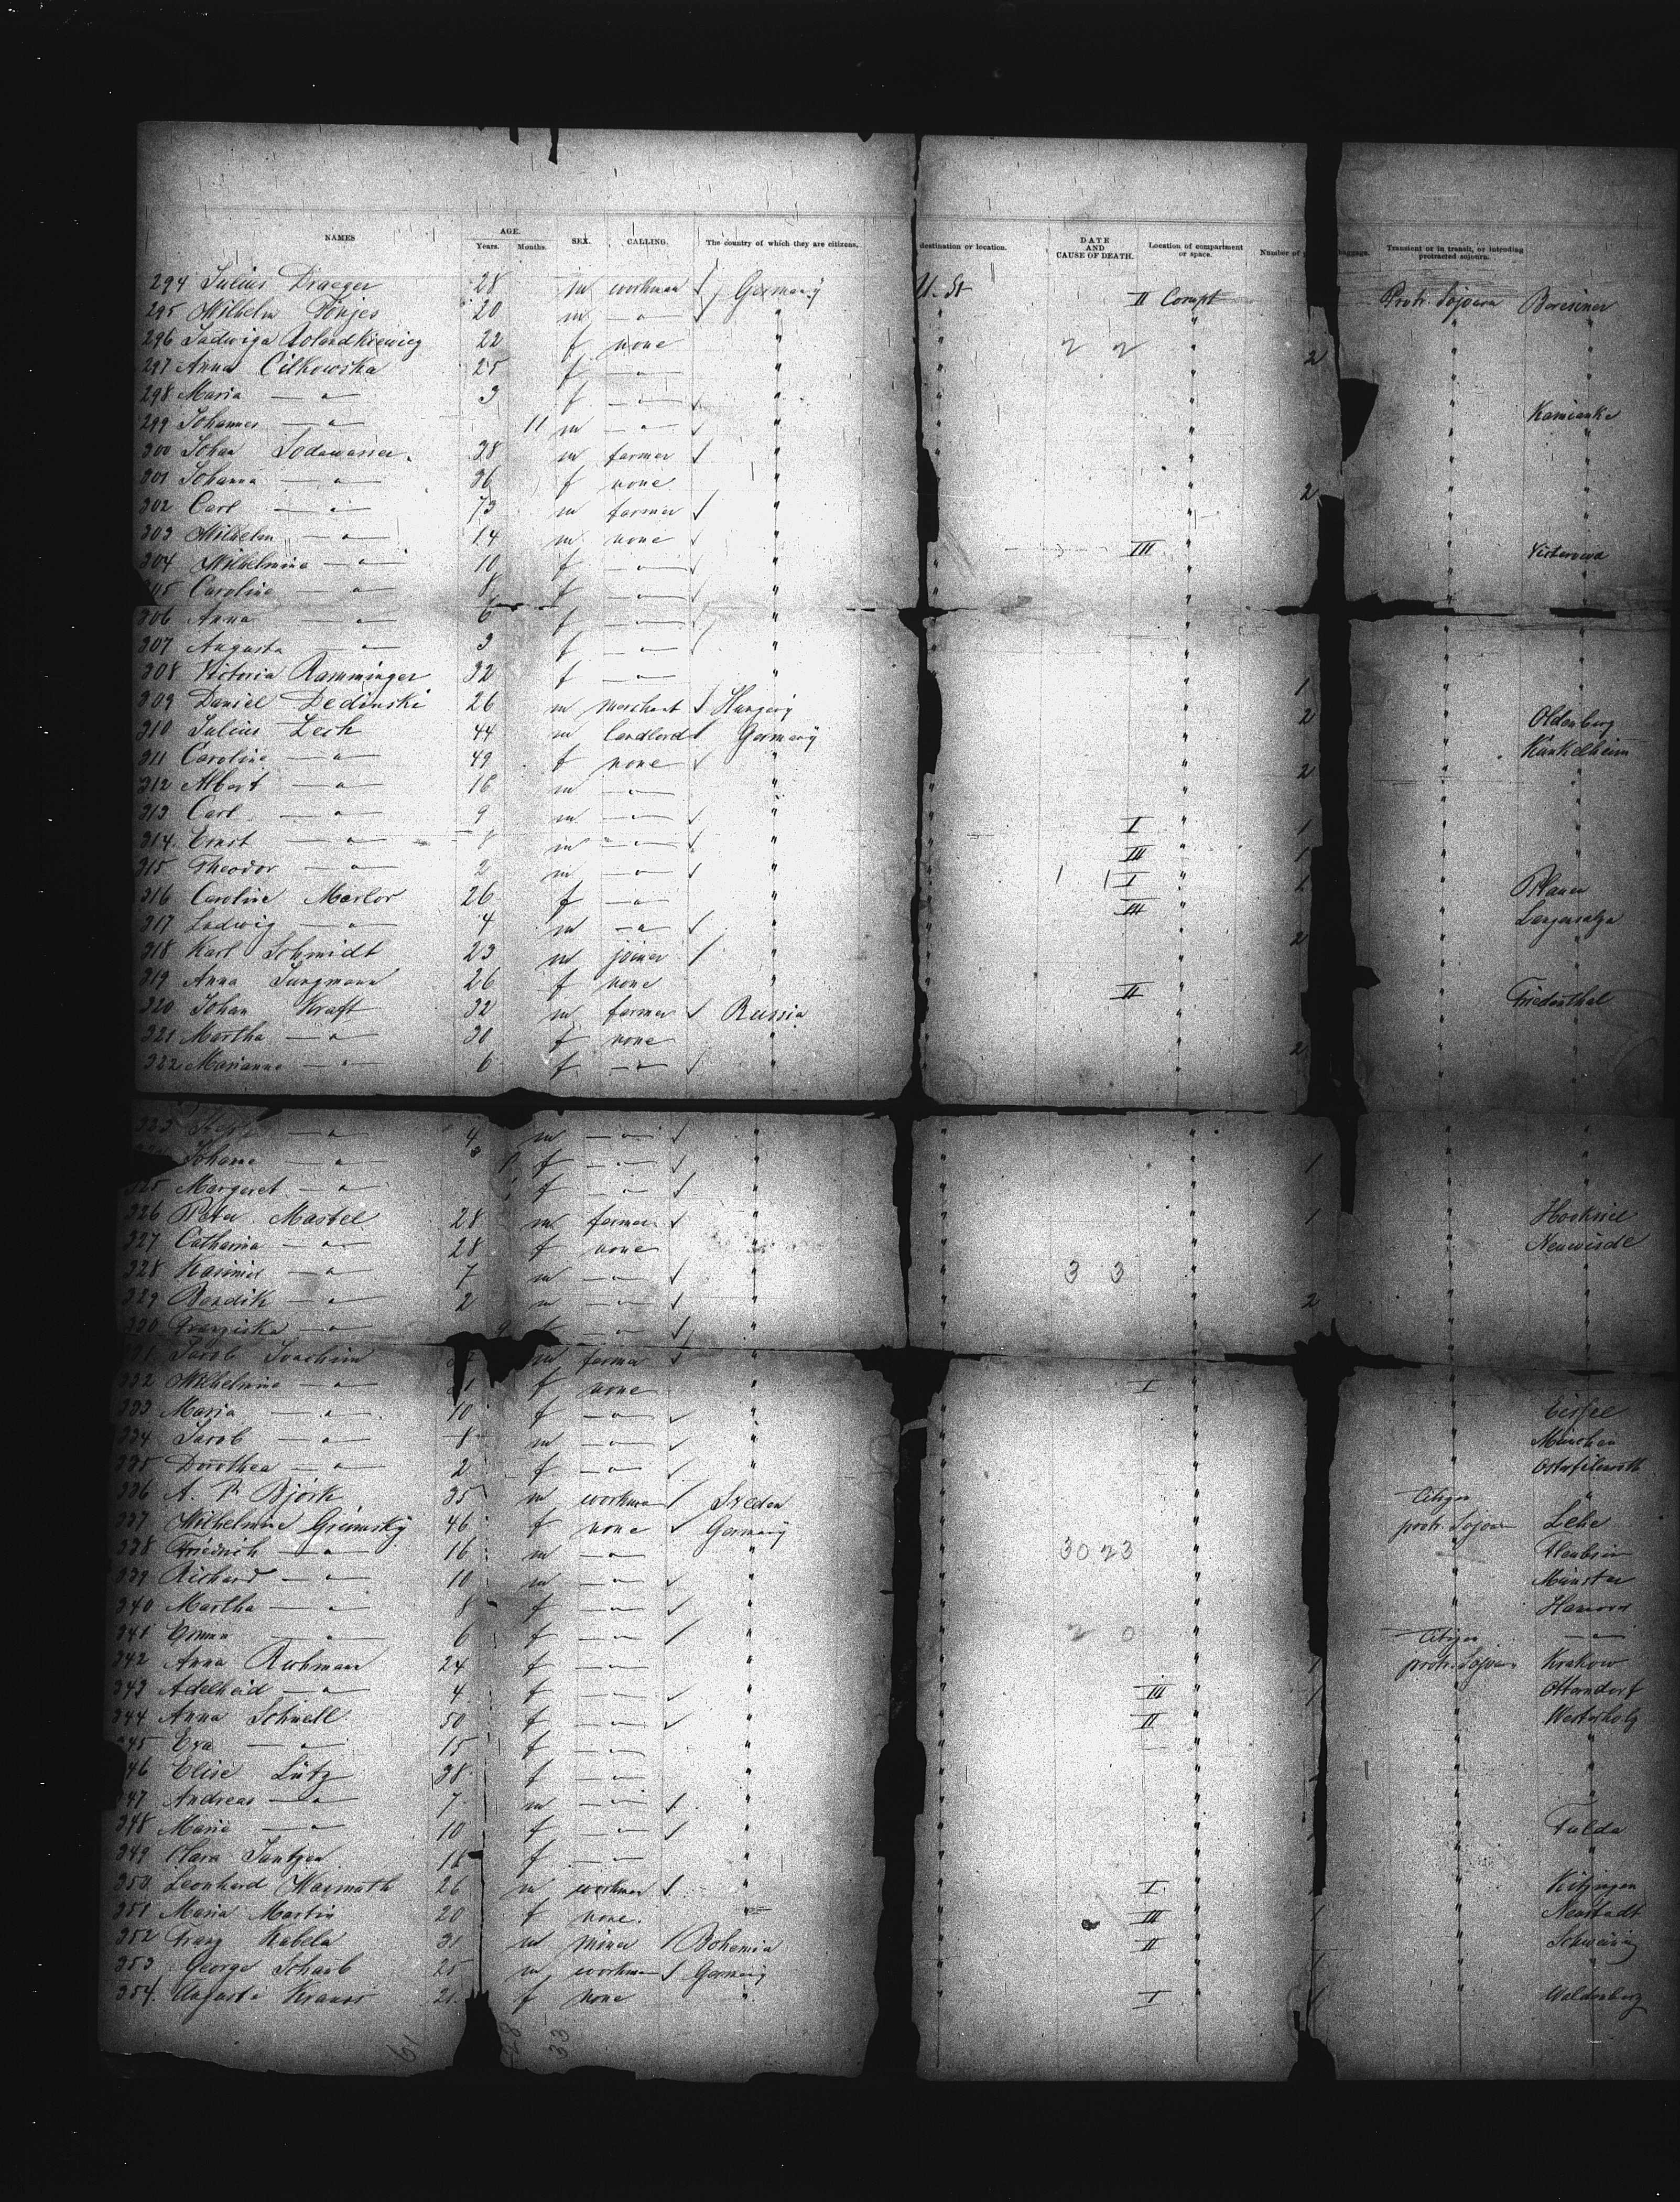 NAMES AGE. Years. Months. SEX. CALLING. The country of which they are citizens. destination or location. DATE AND CAUSE OF DEATH. Location of compartment or space. Number of baggage. Transient or in transit, or intending protracted sojourn.
294 Julius Draeger 28 m workman Germany U. St II Compt Protr. Sojourn
295 Wilhelm Tönjes 20 m — " — " "
296 Jadwiga 22 f none " " 2 2
297 Anna Cilkowska 25 f — " — " " 2
298 Maria — " — 3 f — " — " "
299 Johannes — " — 11 m — " — " " Kamionka
300 Johan Sodawasser 38 m farmer " "
301 Johanna — " — 36 f none " " 2
302 Carl — " — 73 m farmer " "
303 Wilhelm — " — 14 m none " "
304 Wilhelmine — " — 10 f — " — " " III
305 Caroline — " — 8 f — " — " "
306 Anna — " — 6 f — " — "
307 Augusta — " — 3 f — " — "
308 Victoria Ramminger 32 f — " — " 1
309 Daniel Dedinski 26 m merchant Hungary 2 Oldenburg
310 Julius Lech 44 m landlord Germany
311 Caroline — " — 49 f none " 2
312 Albert — " — 16 m — " — "
313 Carl — " — 9 m — " — " I 1
314 Ernst — " — 8 m — " — " III 1
315 Theodor — " — 2 m — " — " I
316 Caroline Marlor 26 f — " — " III Plauen
317 Ludwig — " — 4 m — " — " Langensalza
318 Karl Schmidt 23 m joiner " 2
319 Anna Jungmann 26 f none " II
320 Johan Kraft 32 m farmer Russia Friedenthal
321 Martha — " — 30 f none " 2
322 Marianna — " — 6 f — " — "
323 — " — 4 m — " — "
Johane — " — f — " — " 1
325 Margaret — " — f — " — "
326 Peter Mastel 28 m farmer " 1 Hooksiel
327 Catharina — " — 28 f none "
328 Kasimir — " — 7 m — " — " 3 3
329 Bendik — " — 2 m — " — " 2
330 Franziska — " — 9 — " — "
331 Jacob Joachim m farmer "
332 Wilhelmine — " — f none " I
333 Maria — " — 10 f — " — "
334 Jacob — " — 8 m — " — " München
335 Dorothea — " — 2 f — " — "
336 A. P. Björk 35 m workman Sveden Citizen "
337 Wilhelmine Grimsky 46 f none Germany protr. Sojourn Lehe
338 Friedrich — " — 16 m — " — " 30 23
339 Richard — " — 10 m — " — " Münster
340 Martha — " — 8 f — " — " Hanover
341 Emma — " — 6 f — " — " 2 0 Citizen — " —
342 Anna Rohmann 24 f — " — " 1 protr. Sojourn Krakow
343 Adelheid — " — 4 f — " — " III 1 Otterndorf
344 Anna Schnell 50 f — " — " II Westerholz
345 Eva — " — 15 f — " — " "
346 Elise Lütz 38 f — " — " "
347 Andreas — " — 7 m — " — " "
348 Marie — " — 10 f — " — " Fulda
349 Clara Jantzen f — " — " "
350 Leonhard Warmuth 26 m workman " I Kitzingen
351 Maria Martin 20 f none. " III 1 Neustadt
352 Franz Kabela 31 m miner Bohemia II
353 George Schaub 25 m workman Germany
354 Krauss 21 f none " I 1 Waldenburg
61 28 33